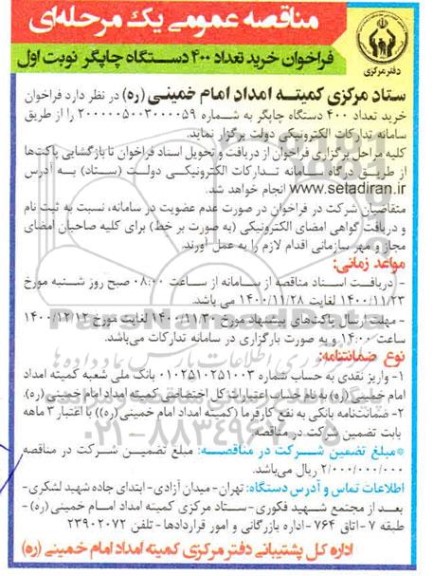 مناقصه عمومی یک مرحله‌ای
دفتر مرکزی
فراخوان خرید تعداد ۴۰۰ دستگاه چاپگر نوبت اول
ستاد مرکزی کمیته امداد امام خمینی (ره) در نظر دارد فراخوان
خرید تعداد ۴۰۰ دستگاه چاپگر به شماره ۲۰۰۰۰۰۵۰۰۳۰۰۰۰۵۹ را از طریق
سامانه تدارکات الکترونیکی دولت برگزار نماید.
کلیه مراحل برگزاری فراخوان از دریافت و تحویل اسناد فراخوان تا بازگشایی پاکت‌ها
از طریق درگاه سامانه تدارکات الکترونیکی دولت (ستاد) به آدرس
www.setadiran.ir انجام خواهد شد.
متقاضیان شرکت در فراخوان در صورت عدم عضویت در سامانه، نسبت به ثبت نام
و دریافت گواهی امضای الکترونیکی (به صورت بر خط) برای کلیه صاحبان امضای
مجاز و مهر سازمانی اقدام لازم را به عمل آورند.
مواعد زمانی:
- دریافت اسناد مناقصه از سامانه از ساعت ۰۸:۰۰ صبح روز شنبه مورخ
۱۴۰۰/۱۱/۲۳ لغایت ۱۴۰۰/۱۱/۲۸ می باشد.
- مهلت ارسال پاکت‌های پیشنهاد مورخ ۱۴۰۰/۱۱/۳۰ لغایت مورخ ۱۴۰۰/۱۲/۱۲
ساعت ۱۴:۰۰ و به صورت بارگزاری در سامانه تدارکات می‌باشد.
نوع ضمانتنامه:
۱- واریز نقدی به حساب شماره ۰۱۰۲۵۱۰۲۵۱۰۰۳ بانک ملی شعبه کمیته امداد
امام خمینی (ره) به نام خزانه اعتبارات کل اختصاصی کمیته امداد امام خمینی (ره).
۲- ضمانت‌نامه بانکی به نفع کارفرما (کمیته امداد امام خمینی(ره)) با اعتبار ۳ ماهه
بابت تضمین شرکت در مناقصه
*مبلغ تضمین شرکت در مناقصه: مبلغ تضمین شرکت در مناقصه
۲/۰۰۰/۰۰۰/۰۰۰ ریال می‌باشد.
اطلاعات تماس و آدرس دستگاه: تهران-میدان آزادی-ابتدای جاده شهید لشکری-
بعد از مجتمع شهید فکوری-ستاد مرکزی کمیته امداد امام خمینی (ره)-
طبقه ۷-اتاق ۷۶۴-اداره بازرگانی و امور قراردادها-تلفن ۲۳۹۰۲۰۷۲
اداره کل پشتیبانی دفتر مرکزی کمیته امداد امام خمینی (ره)
ParsNamadData
۰۲۱-۸۸۳۴۹۶۷۰-۵